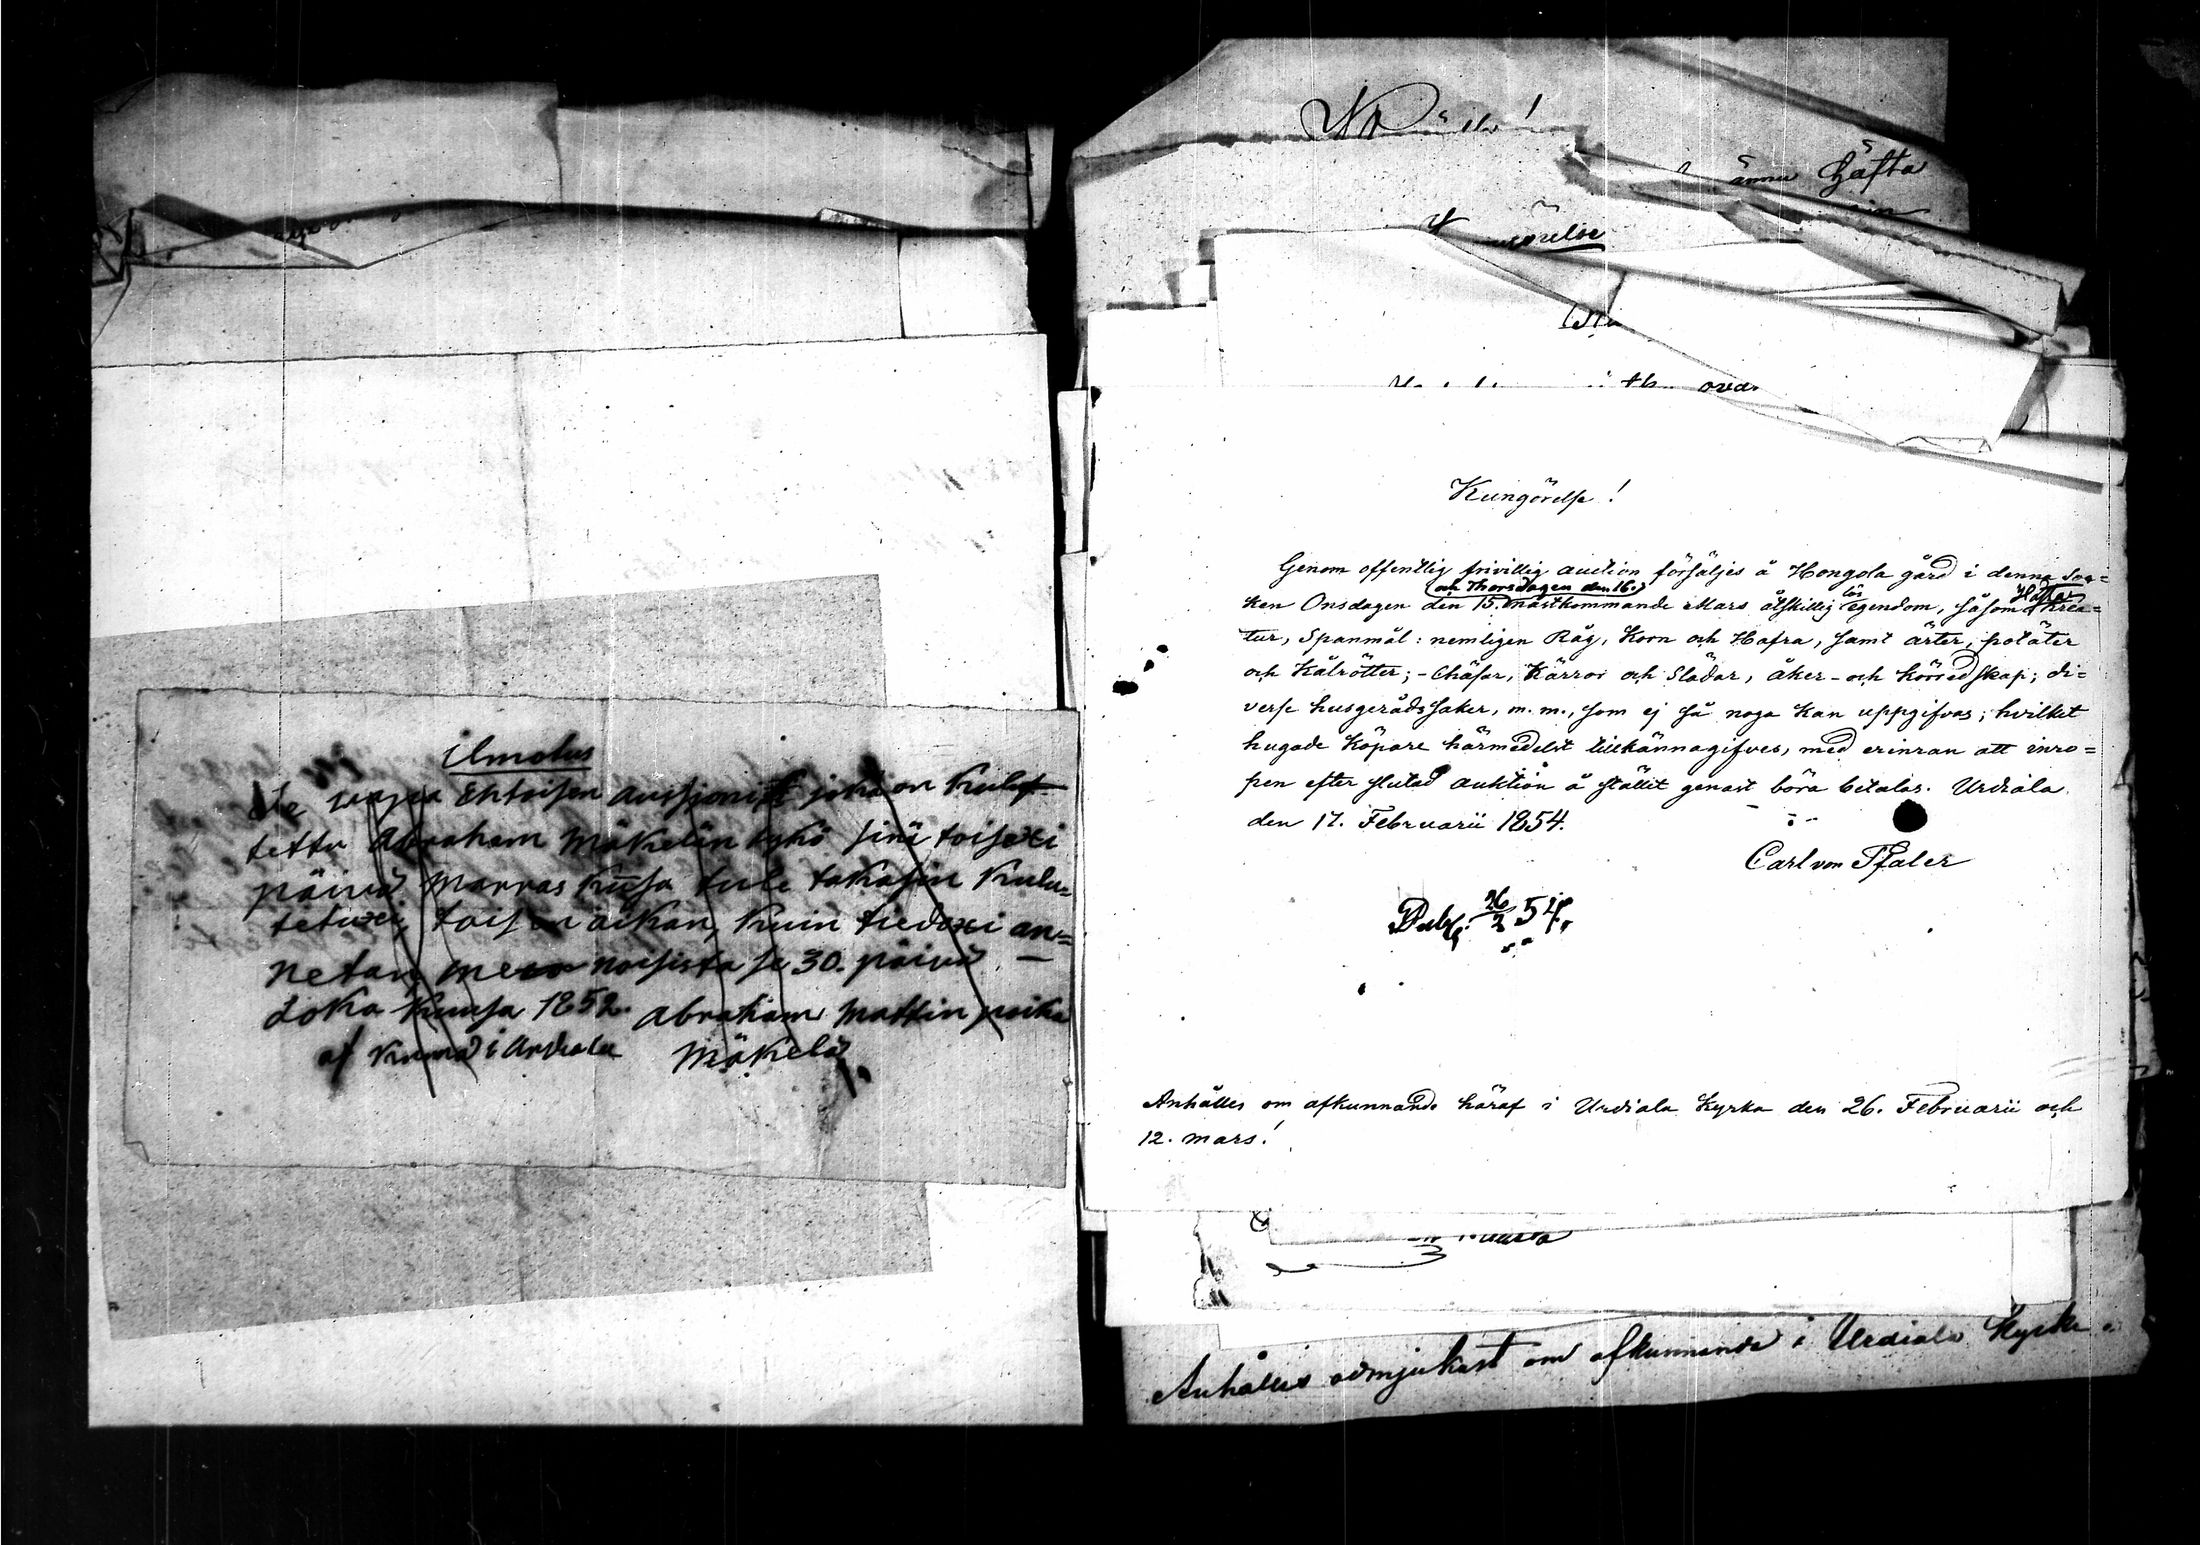 ilmotus
Se wapa Ehtoisen aussjoni joka on kulut
tettu Abraham Mäkelän tykö sinä toisexi
päivä marras kusa tule takasin kulu=
tetuxi, toisen aikan, kuin tiedoxi an=
netan, noisista se 30. päivä —
Loka kuusa 1852. Abraham Mattin poika
af Kurma i Urdiala Mäkelä
ännu häfta
Kungörelse!
Genom offentlig frivillig auction försäljes å Hongola gård i denna Soc=
och Thorsdagen den 16. lös Hästar
ken Onsdagen den 15. nästkommande Mars åtskillig egendom, såsom Krea=
tur, Spanmål: nemligen Råg, Korn och Hafra, samt ärter, potäter
och Kålrötter; - Chäsar, Kärror och Slädar, åker- och körredskap; di=
verse husgerådssaker, m. m., som ej så noga kan uppgifvas; hvilket
hugade Köpare härmedelst tillkännagifves, med erinran att inro=
pen efter slutad auktion å stället genast böra betalas. Urdiala
den 17. Februarii 1854.
Carl von Pfaler
Publ. 26/2 54.
Anhålles om afkunnande häraf i Urdiala Kyrka den 26. Februarii och
12. Mars!
Anhålles ödmjukast om afkunnande i Urdiala Kyrka